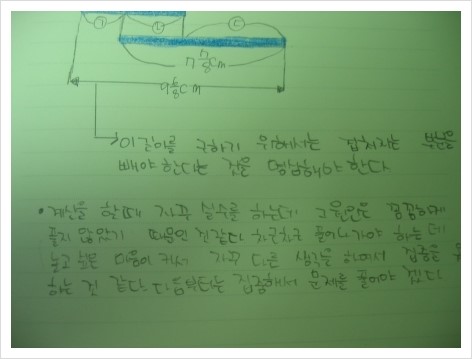 ㉠ ㉡ ㉢
7 7/8 cm
9 6/8 cm
이 길이를 구하기 위해서는 겹쳐지는 부분을
빼야 한다는 것을 명심해야 한다
• 계산을 할때 자꾸 실수를 하는데 그 원인은 꼼꼼하게
풀지 않았기 때문인 것 같다 차근차근 풀어나가야 하는데
놀고 싶은 마음이 커서 자꾸 다른 생각을 하여서 집중을 못
하는 것 같다. 다음부터는 집중해서 문제를 풀어야 겠다